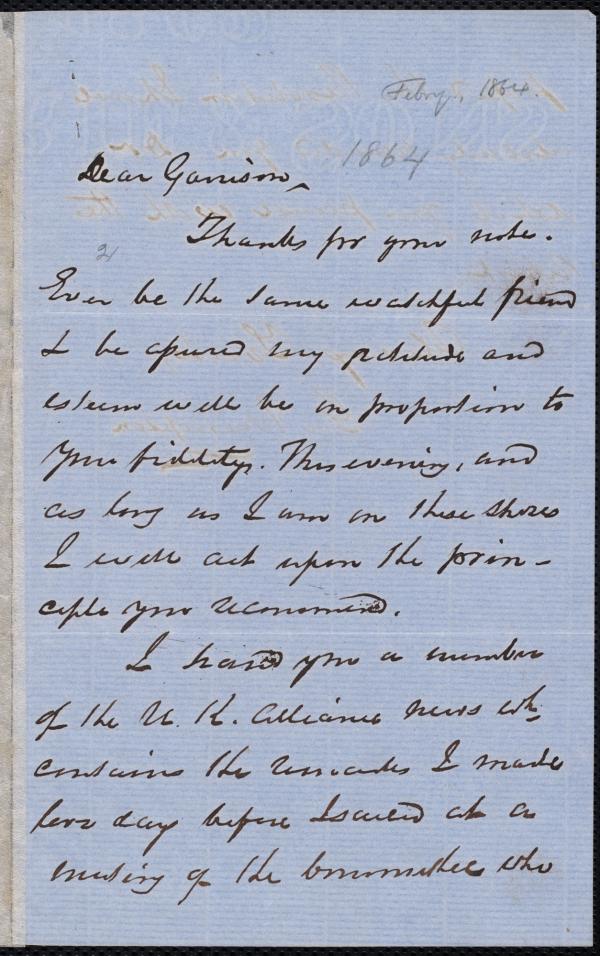 Febry, 1864.
1864
Dear Garrison,
Thanks for your note.
Ever be the same watchful friend
& be assured my gratitude and
esteem will be in proportion to
your fidelity. This evening, and
as long as I am on these shores
I will act upon the prin-
ciple you recommend.
I hand you a number
of the U. K. Alliance news wh
contains the remarks I made
two day before I sailed at a
meeting of the Committee who